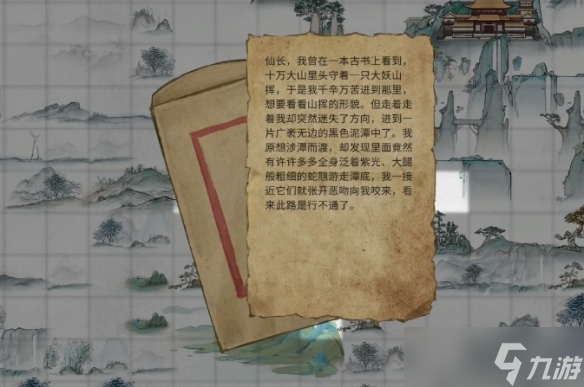 仙长，我曾在一本古书上看到，
十万大山里头守着一只大妖山
挥，于是我千辛万苦进到那里，
想要看看山挥的形貌。但走着走
着我却突然迷失了方向，进到一
片广袤无边的黑色泥潭中了。我
原想涉潭而渡，却发现里面竟然
有许许多多全身泛着紫光、大腿
般粗细的蛇虺游走潭底，我一接
近它们就张开恶吻向我咬来，看
来此路是行不通了。
九游